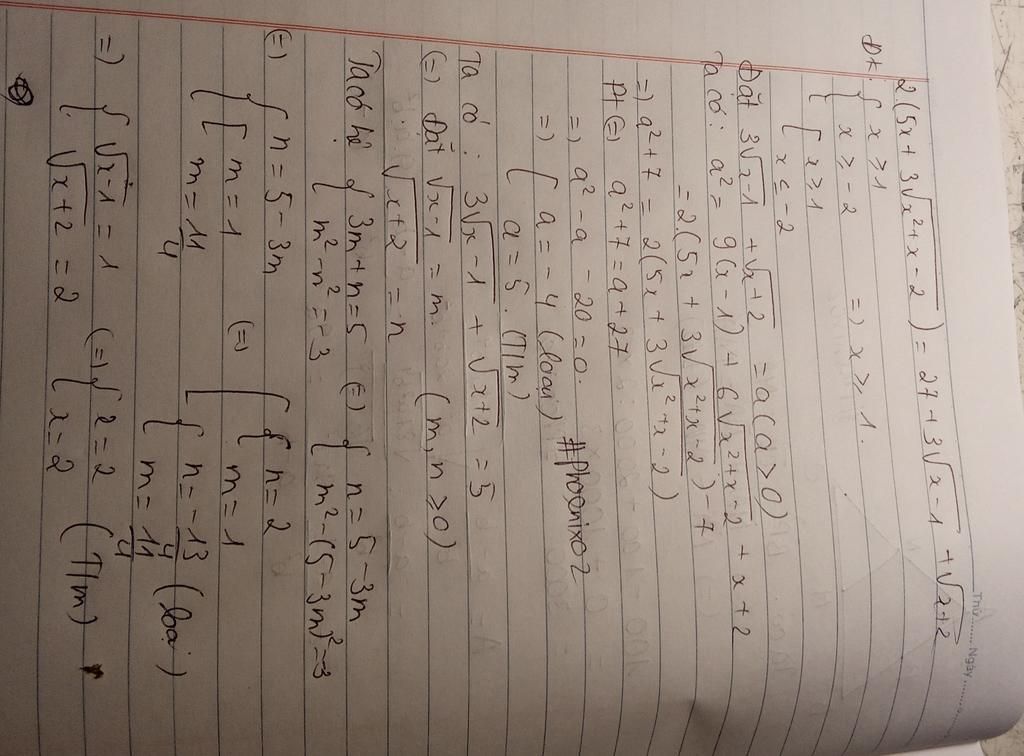 Thứ......... Ngày.........
2(5x + 3√(x²+x-2)) = 27 + 3√(x-1) + √(x+2)
Đk: { x ≥ 1
{ x ≥ -2 => x ≥ 1.
{ [ x ≥ 1
x ≤ -2
Đặt 3√(x-1) + √(x+2) = a (a > 0)
Ta có: a² = 9(x-1) + 6√(x²+x-2) + x + 2
= 2(5x + 3√(x²+x-2)) - 7
=> a² + 7 = 2(5x + 3√(x²+x-2)
Pt (=) a² + 7 = a + 27
=> a² - a - 20 = 0.
=> [ a = -4 (loại) #Phoonixo2
a = 5. (T/m)
Ta có: 3√(x-1) + √(x+2) = 5
(=) Đặt √(x-1) = m. (m, n ≥ 0)
√(x+2) = n
Ta có hệ { 3m + n = 5 (=) { n = 5 - 3m
{ m² - n² = -3 { m² - (5 - 3m)² = -3
(=) { n = 5 - 3m (=) [ { n = 2
{ [ m = 1 { m = 1
m = 11/4 { n = -13/4 (loại)
{ m = 11/4
=> { √(x-1) = 1 (=) { x = 2 (T/m)
{ √(x+2) = 2 { x = 2